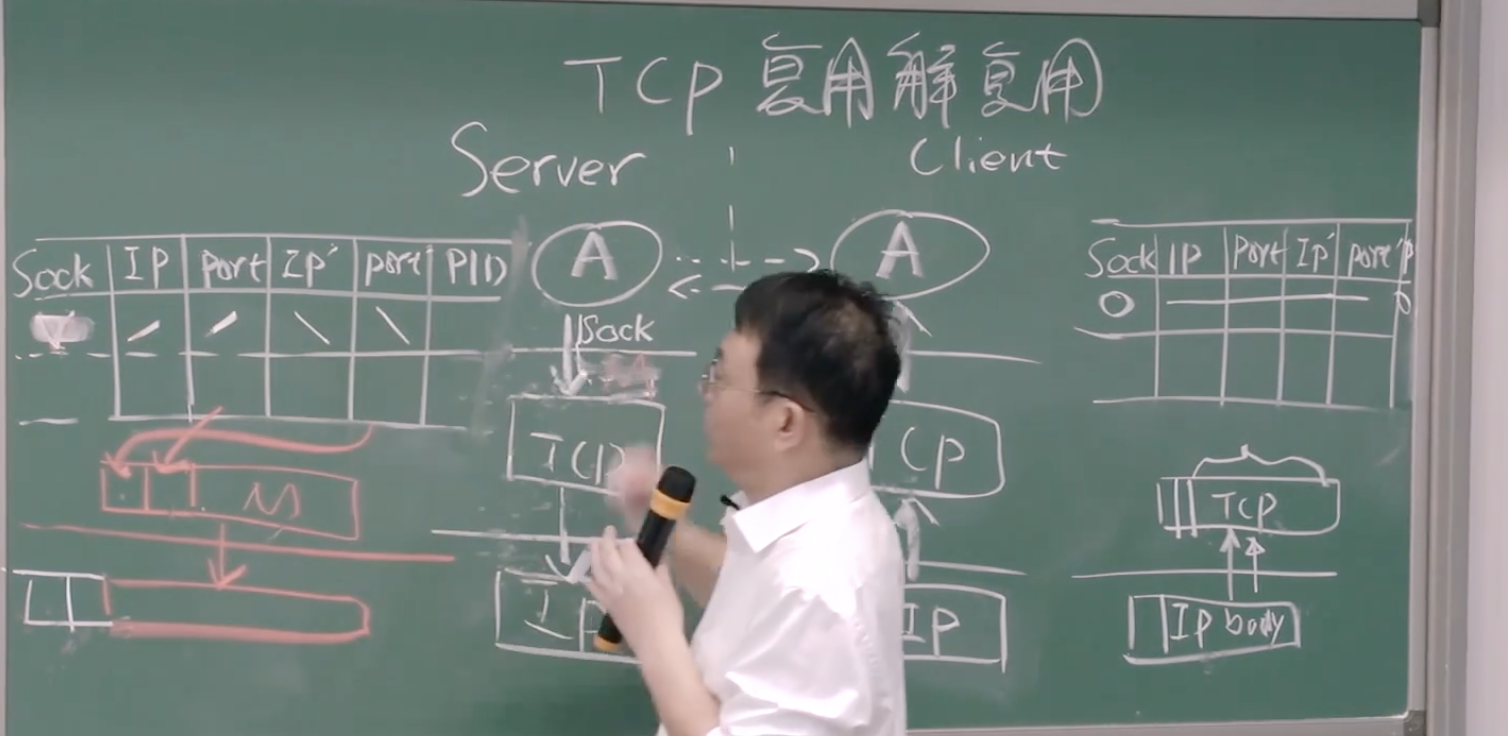 TCP 复用解复用
Server Client
Sock IP Port IP' port' PID
A
Sock
TCP
M
A
CP
IP
Sock IP Port IP' port' P
0 0
TCP
IP body